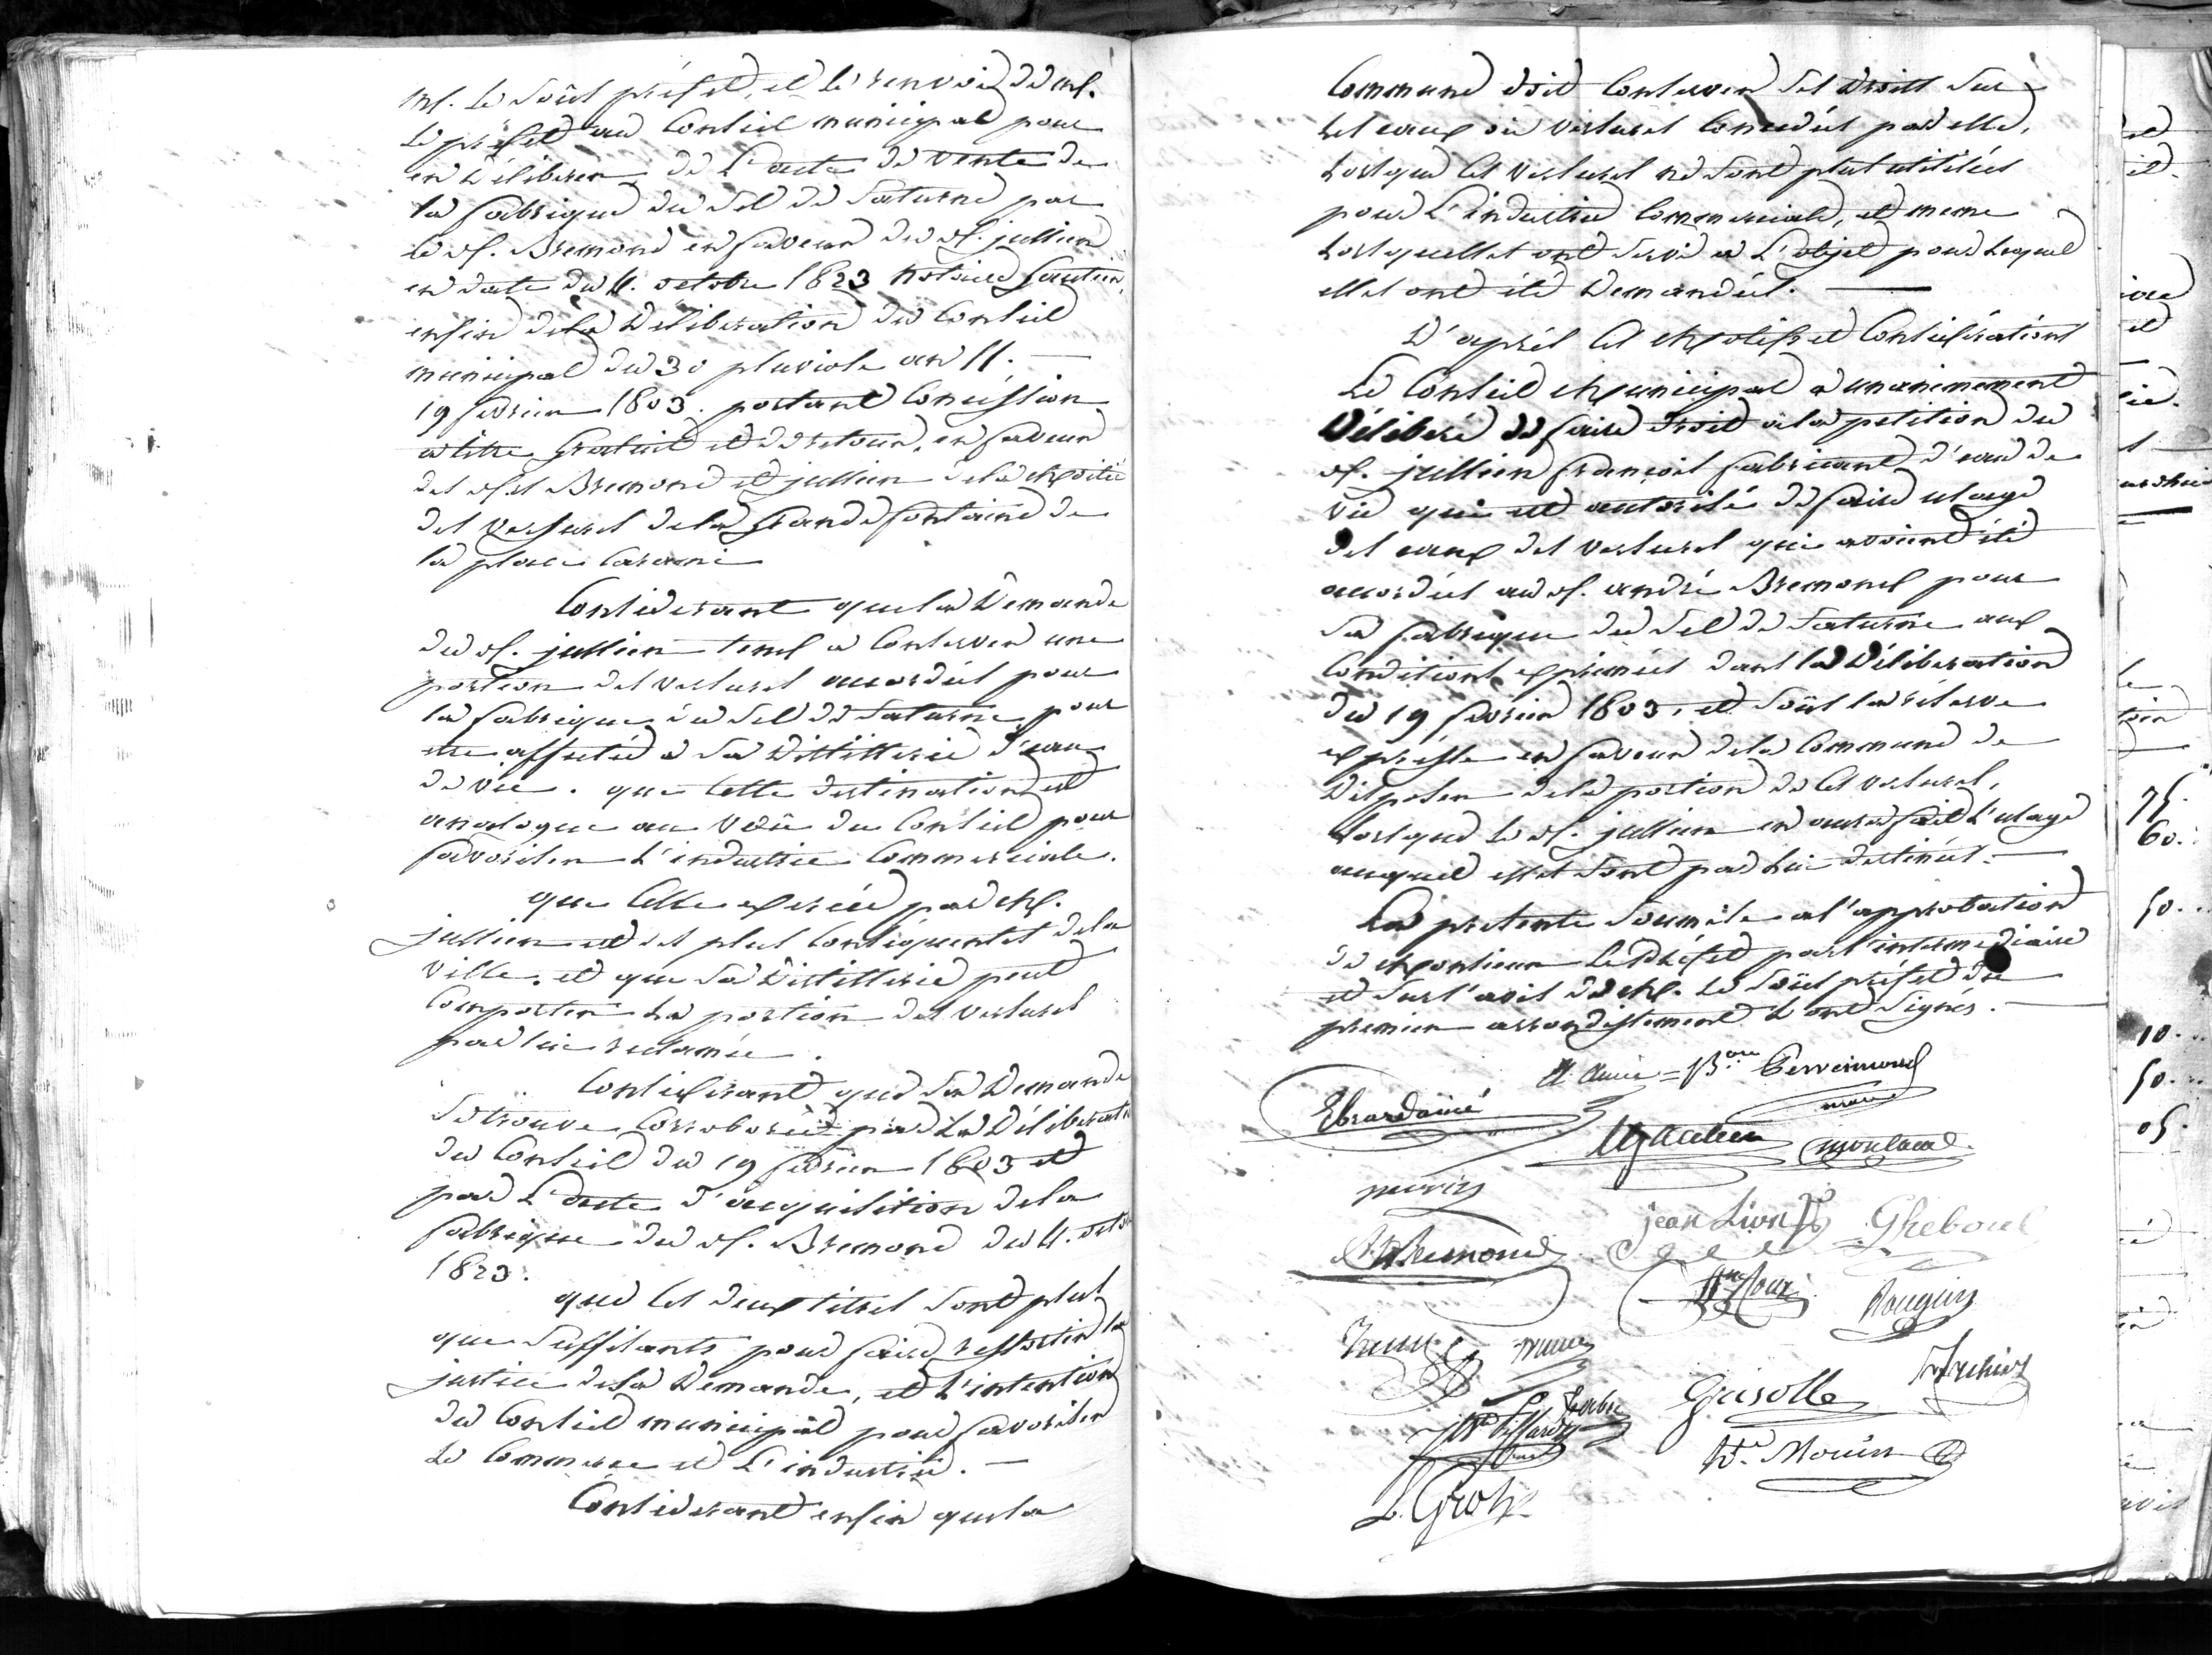 Mr. le Sous préfet, et le renvoi de Mr.
le préfet au Conseil municipal pour
en Délibérer, de L'acte de vente de
la fabrique du Sel de Saturne par
le Sr. Bremond en faveur du Sr. jullien
en date du 11. octobre 1823 Notaire
enfin de la Délibération du Conseil
municipal du 30 pluviose an 11. —
19 février 1803. portant Concession
a titre gratuit et de retour, en faveur
des Srs Bremond et jullien de la Moitié
des versures de la Grande fontaine de
la place Carami
Considerant que la Demande
du Sr. jullien tend a Conserver une
portion des versures accordées pour
la fabrique du Sel de Saturne pour
etre affectée a sa Distillerie d'eau
de vie. que cette destination est
analogue au vœu du Conseil pour
favoriser L'industrie Commerciale.
que celle exercée par Mr.
jullien est des plus Conséquentes de la
ville, et que sa Distillerie peut
Comporter la portion des versures
par lui reclamée.
Considerant que sa Demande
se trouve Corroborée par la Déliberati
du Conseil du 19 février 1803 et
par L'acte d'acquisition de la
fabrique du Sr. Bremond du 11. octo
1823.
que ces deux titres sont plus
que suffisants pour faire ressortir la
justice de la Demande, et L'intention
du Conseil municipal pour favoriser
le Commerce et L'industrie. —
Considerant enfin que la
Commune doit Conserver ses Droits sur
les eaux où versures Concédées par elle,
lorsque ces versures ne sont plus utilisées
pour L'industrie Commerciale, et meme
lorsquelles ont servi a L'objet pour lequel
elles ont été Demandées. —
D'après ces Motifs et Considérations
Le Conseil Municipal a unanimement
Délibéré de faire droit à la petition du
Sr. jullien françois fabricant d'eau de
vie qui est autorisé de faire usage
des eaux des versures qui avoient été
accordées au Sr. andré Bremond pour
sa fabrique du Sel de Saturne aux
Conditions exprimées dans la Délibération
du 19 février 1803, et sous la réserve
expresse en faveur de la Commune de
Disposer de la portion de ces versures,
lorsque le Sr. jullien en aura fait L'usage
auquel elles sont par lui destinées. —
La presente soumise a l'approbation
de Monsieur le Préfet par l'intermediaire
et sur l'avis de Mr. le Sous préfet du
premier arrondissement L'ont signés. —
Ebrard ainé
maire
jean Lion
Gheboul
Bremond
Roux
Rougiers
Grisolle
L. Gros